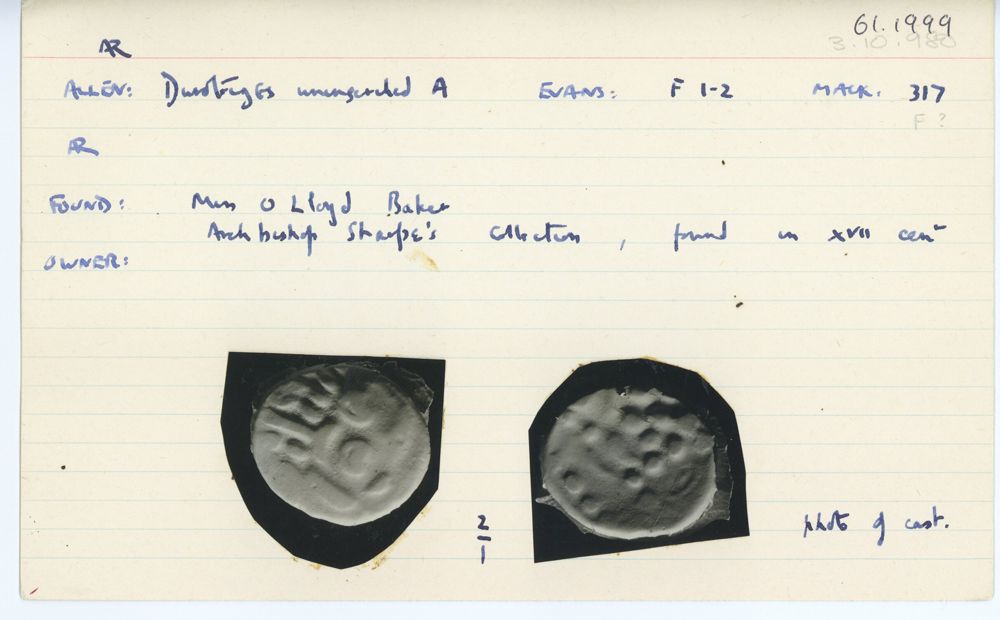 61.1999
3.10.980
AR
ALLEN: Durotriges uninscribed A EVANS: F 1-2 MACK. 317
F ?
AR
FOUND: Miss O Lloyd Baker
Archbishop Sharpe's collection, found in XVII cent
OWNER:
2
1
photo of cast.